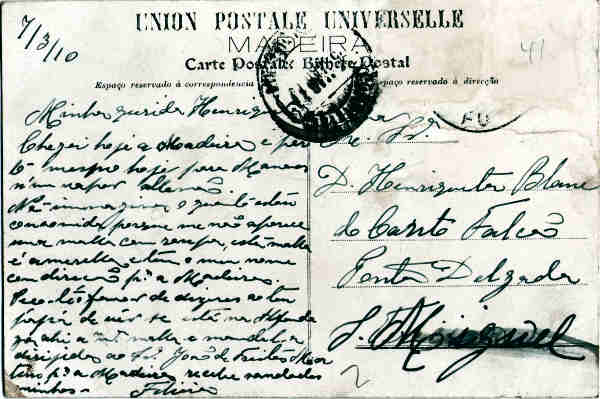 7/3/10
UNION POSTALE UNIVERSELLE
MADEIRA
Carte Postale Bilhete Postal
Espaço reservado á correspondencia
Espaço reservado á direcção
41
FU
Minha querida
Cheguei hoje a Madeira e par
to mesmo hoje para Manaos
n'um vapor allemão.
Não immagina o quanto estou
porque me não aparece
uma malla com roupa, esta malla
é amarella e tem o meu nome
com direcção pª a Madeira.
Peço-lhe o favor de dizeres ao teu
papá de ver se está na Alfande
ga ahi a tal malla e mandal-a
dirigida ao Snr João de Freitas Mar
tins pª a Madeira recebe saudades
minhas
D. Henriqueta Blanc
do Canto Falcão
Ponta Delgada
S. Miguel
2